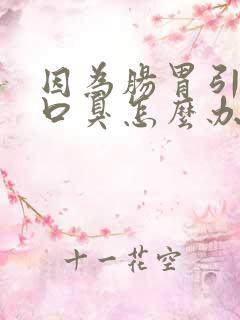 因為腸胃引
口臭怎麼办
十一花空